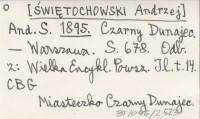 [ŚWIĘTOCHOWSKI Andrzej]
And. S. 1895. Czarny Dunajec.
— Warszawa. S. 678. Odb.
z: Wielka Encykl. Powsz. Il. t. 14.
CBG
Miasteczko Czarny Dunajec.